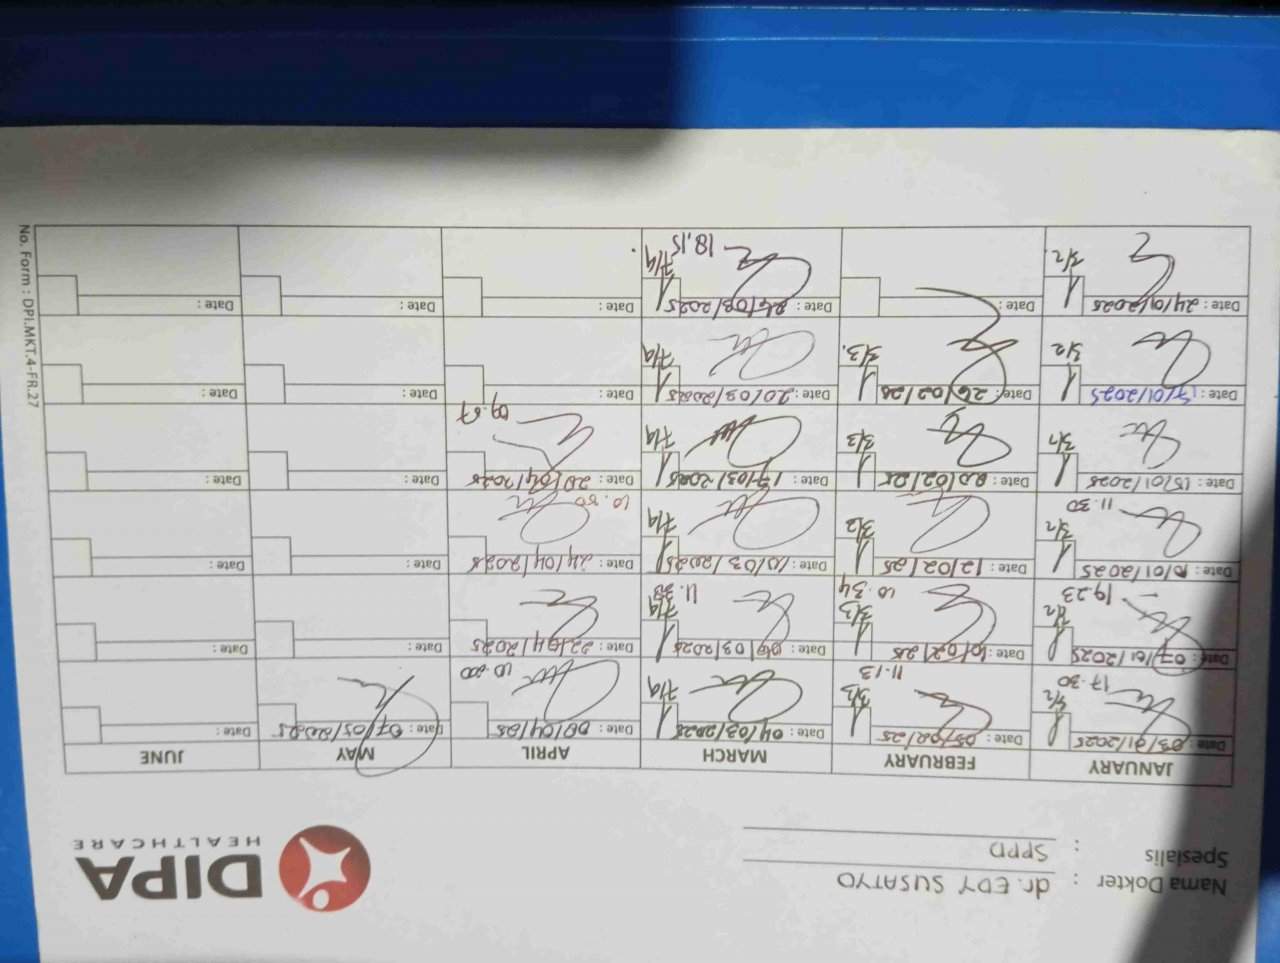 DIPA
HEALTHCARE
Nama Dokter : dr. EDY SUSATYO
Spesialis : SPPD
JANUARY FEBRUARY MARCH APRIL MAY JUNE
Date : 03/01/2025 Date : 05/02/25 Date : 04/03/2025 Date : 08/04/25 Date : 07/05/2025 Date :
17.30 11.13 3/3 7/4 10.00
Date : 07/01/2025 Date : 10/02/25 Date : 06/03/2025 Date : 22/04/2025 Date : Date :
19.23 10.34 3/3 11.30 7/4
Date : 10/01/2025 Date : 12/02/25 Date : 10/03/2025 Date : 24/04/2025 Date : Date :
11.30 3/2 7/4 10.30
Date : 15/01/2025 Date : 20/02/25 Date : 17/03/2025 Date : 28/04/2025 Date : Date :
3/3 7/4 09.
Date : 17/01/2025 Date : 26/02/25 Date : 20/03/2025 Date : Date : Date :
3/2 3/3. 7/4
Date : 24/01/2025 Date : Date : 26/03/2025 Date : Date : Date :
3/2. 18.15 7/4
No. Form : DPI.MKT.4-FR.27